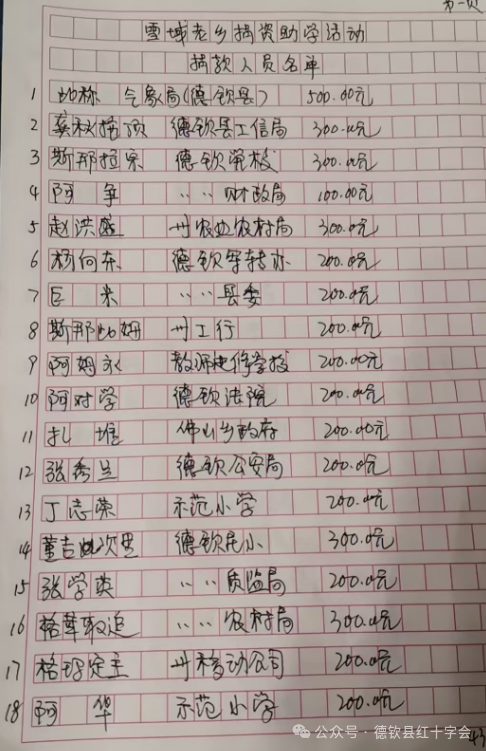 第一页
雪域老乡捐资助学活动
捐款人员名单
1 此称 气象局(德钦县) 500.00元
2 德钦县工信局 300.00元
3 斯那拉宗 德钦党校 300.00元
4 阿争 〃 财政局 100.00元
5 赵洪盛 州农业农村局 300.0元
6 杨向东 德钦军转办 200.0元
7 巨米 〃 县委 200.0元
8 斯那此姆 州工行 200.00元
9 阿姆永 教师进修学校 200.00元
10 阿对学 德钦法院 200.00元
11 扎堆 佛山乡政府 200.00元
12 张秀兰 德钦公安局 200.0元
13 丁志荣 示范小学 200.0元
14 董吉此次里 德钦完小 300.0元
15 张学英 〃 质监局 200.0元
16 格茸取追 〃 农村局 300.0元
17 格玛定主 州移动公司 200.0元
18 阿华 示范小学 200.0元
公众号·德钦县红十字会
43